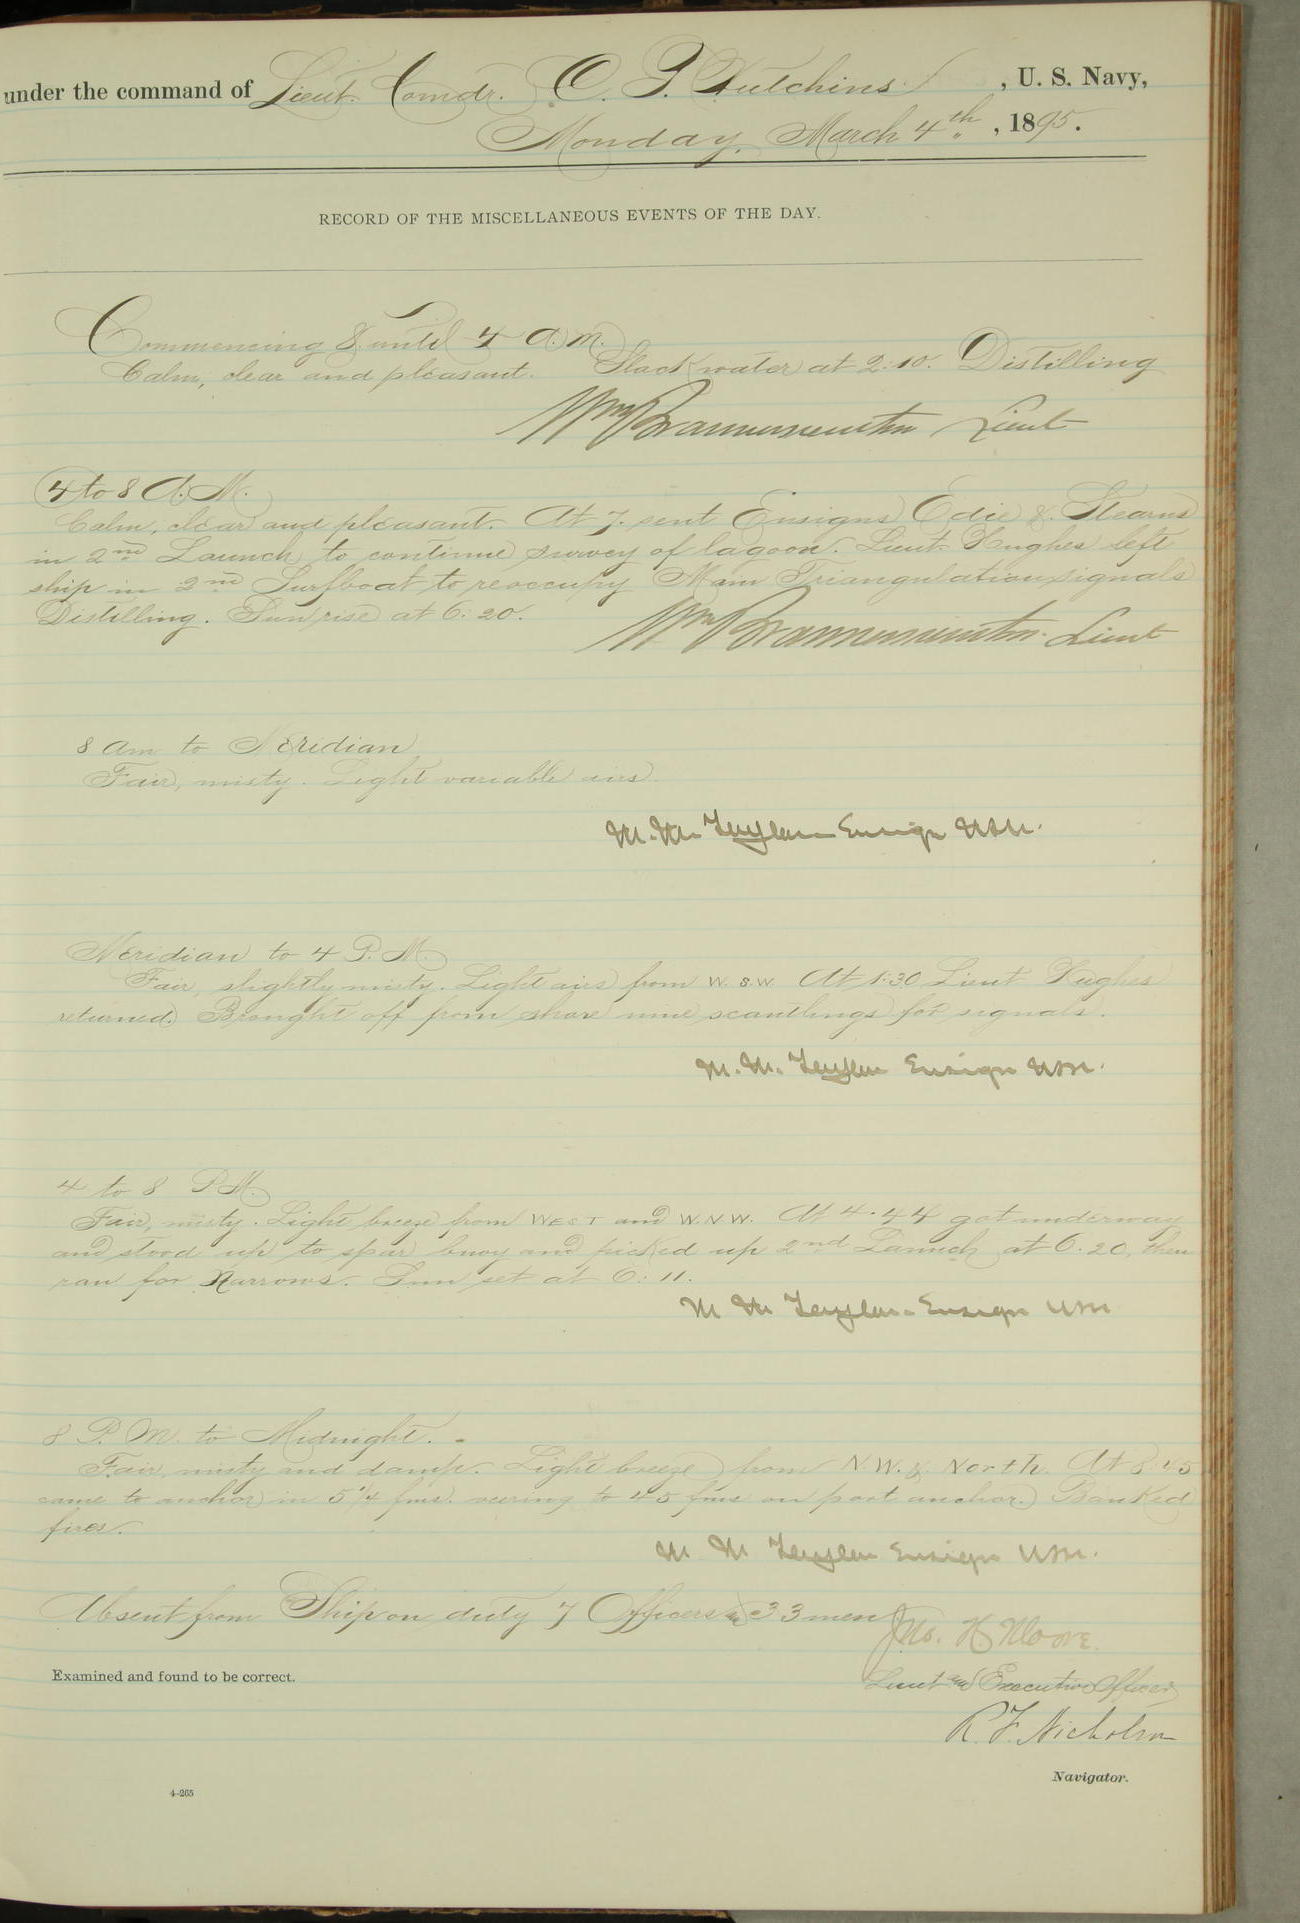 under the command of Lieut. Comdr. C. T. Hutchins, U. S. Navy,
Monday, March 4th, 1895.
RECORD OF THE MISCELLANEOUS EVENTS OF THE DAY.
Commencing & until 4 A. M.
Calm, clear and pleasant. Slack water at 2:10. Distilling
Lieut
4 to 8 A. M.
Calm, clear and pleasant. At 7. sent Ensigns Edie & Stearns
in 2nd Launch to continue survey of lagoon. Lieut. Hughes left
ship in 2nd Surfboat to reoccupy Main Triangulation signals
Distilling. Sun rise at 6:20.
Lieut
8 am to Meridian
Fair, misty. Light variable airs.
M. M. Taylor Ensign USN.
Meridian to 4 P. M.
Fair, slightly misty. Light airs from W. S. W. At 1:30 Lieut Hughes
returned. Brought off from shore nine scantlings for signals.
M. M. Taylor Ensign USN.
4 to 8 P M.
Fair, misty. Light breeze from WEST and W. N. W. At 4.44 got underway
and stood up to spar buoy and picked up 2nd Launch at 6.20, then
ran for Narrows. Sun set at 6:11.
M M Taylor Ensign USN
8 P. M. to Midnight.
Fair, misty and damp. Light breeze from N. W. & North. At 8:45
came to anchor in 5 1/4 fms. veering to 45 fms on port anchor. Banked
fires.
M M Taylor Ensign USN.
Absent from Ship on duty 7 Officers and 33 men
Jno. H. Moore.
Lieut and Executive Officer
Examined and found to be correct.
R. F. Nicholson
Navigator.
4-265